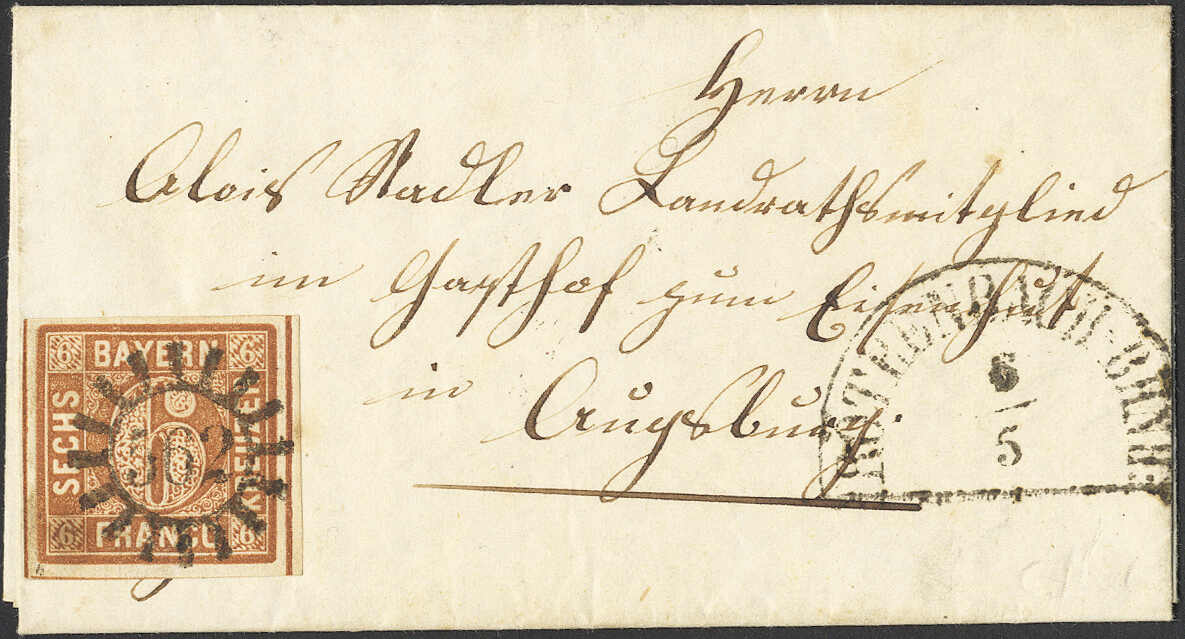 Herrn
Alois Stadler Landrathsmitglied
im Gasthof zum Eisenhut
in
Augsburg.
6
BAYERN
6
SECHS
KREUZER
6
FRANCO
6
302
RÖTHENBACH
6
5